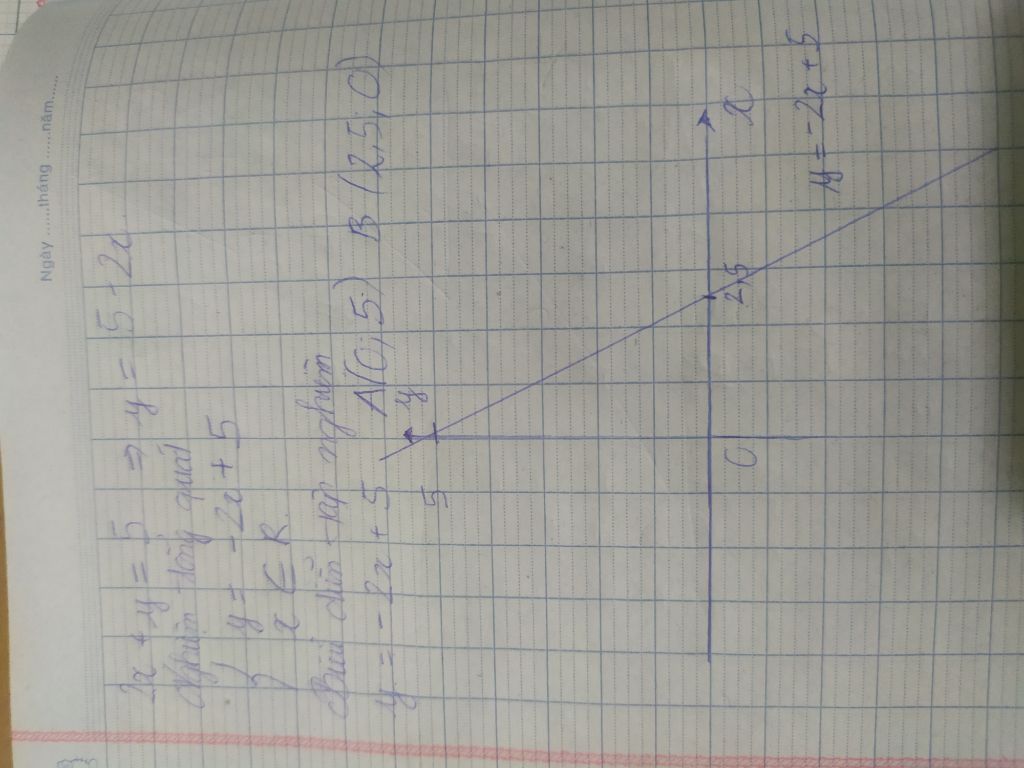 Ngày ......tháng ......năm......
2x + y = 5 ⇒ y = 5 - 2x
Nghiệm tổng quát
{ y = -2x + 5
x ∈ R
Biểu diễn tập nghiệm
y = -2x + 5 A(0; 5) B (2,5; 0)
y
5
O
2,5
x
y = -2x + 5